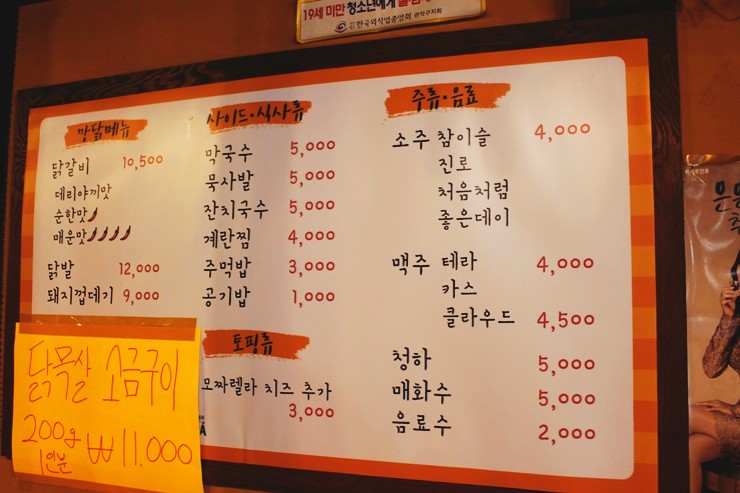 19세 미만 청소년에게
한국외식업중앙회 관악구지회
깡닭메뉴
닭갈비 10,500
데리야끼맛
순한맛
매운맛
닭발 12,000
돼지껍데기 9,000
닭목살 소금구이
200g ₩11.000
1인분
사이드·식사류
막국수 5,000
묵사발 5,000
잔치국수 5,000
계란찜 4,000
주먹밥 3,000
공기밥 1,000
토핑류
모짜렐라 치즈 추가
3,000
주류·음료
소주 참이슬 4,000
진로
처음처럼
좋은데이
맥주 테라 4,000
카스
클라우드 4,500
청하 5,000
매화수 5,000
음료수 2,000